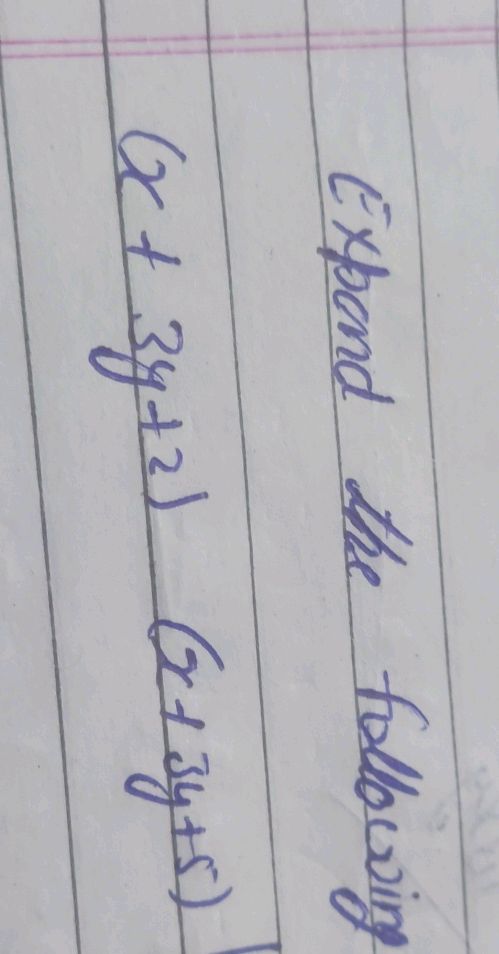 Expand the following
(x + 3y+2) (x+3y+5)